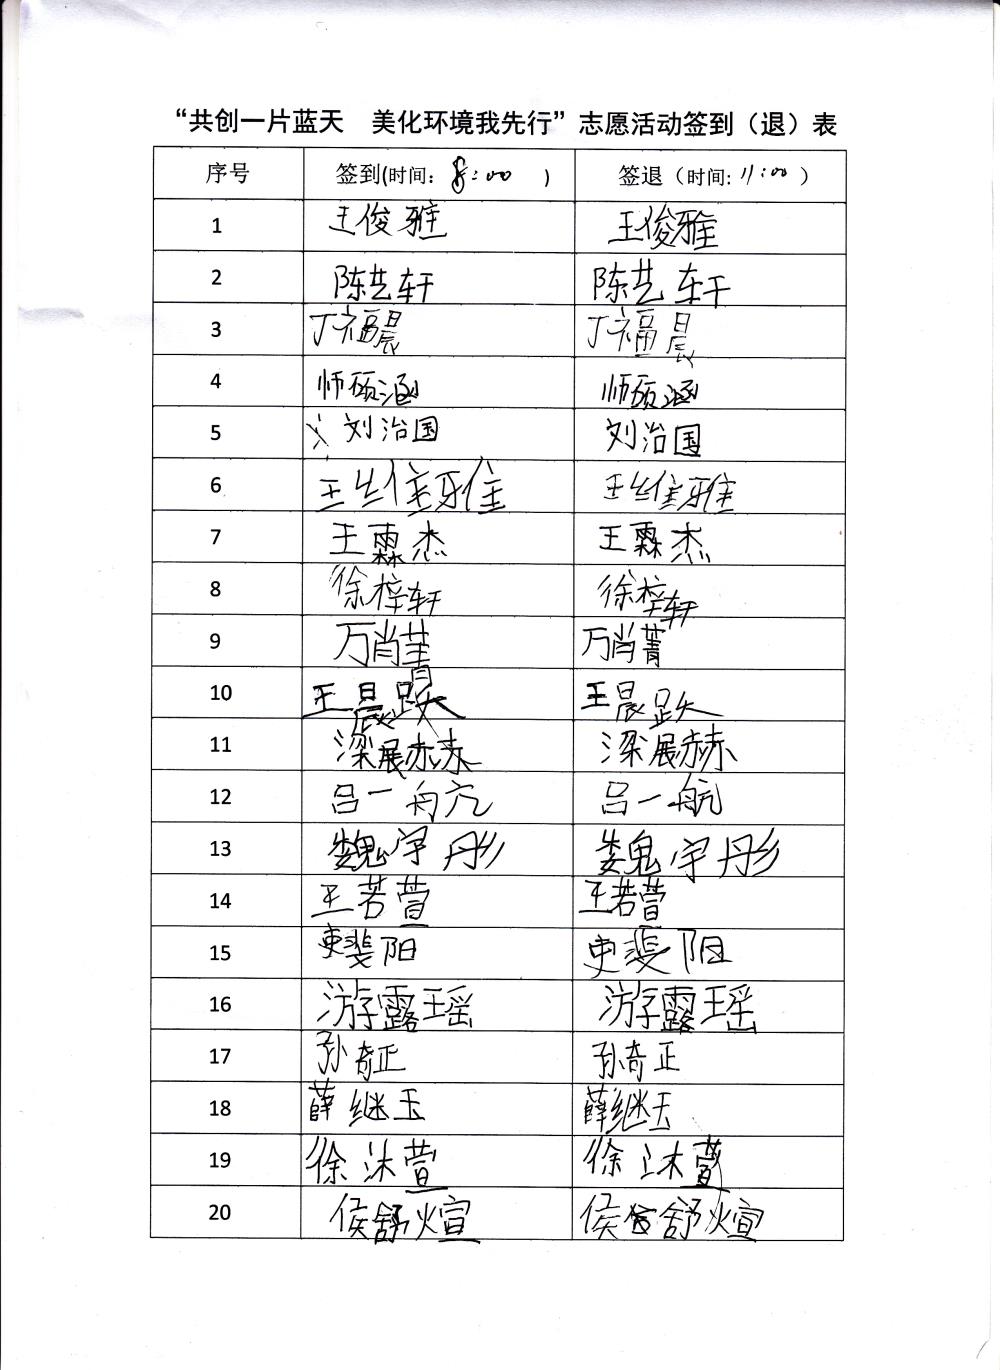 “共创一片蓝天 美化环境我先行”志愿活动签到（退）表
序号 签到(时间: 8:00 ) 签退（时间: 11:00 ）
1 王俊雅 王俊雅
2 陈艺轩 陈艺轩
3 丁福晨 丁福晨
4 师硕涵 师硕涵
5 刘治国 刘治国
6 王维雅 王维雅
7 王霖杰 王霖杰
8 徐梓轩 徐梓轩
9 万肖菁 万肖菁
10 王晨 王晨
11 梁展赫 梁展赫
12 吕一航 吕一航
13 魏宇彤 魏宇彤
14 王若萱 王若萱
15 史斐阳 史斐阳
16 游露瑶 游露瑶
17 孙奇正 孙奇正
18 薛继玉 薛继玉
19 徐沐萱 徐沐萱
20 侯舒煊 侯舒煊